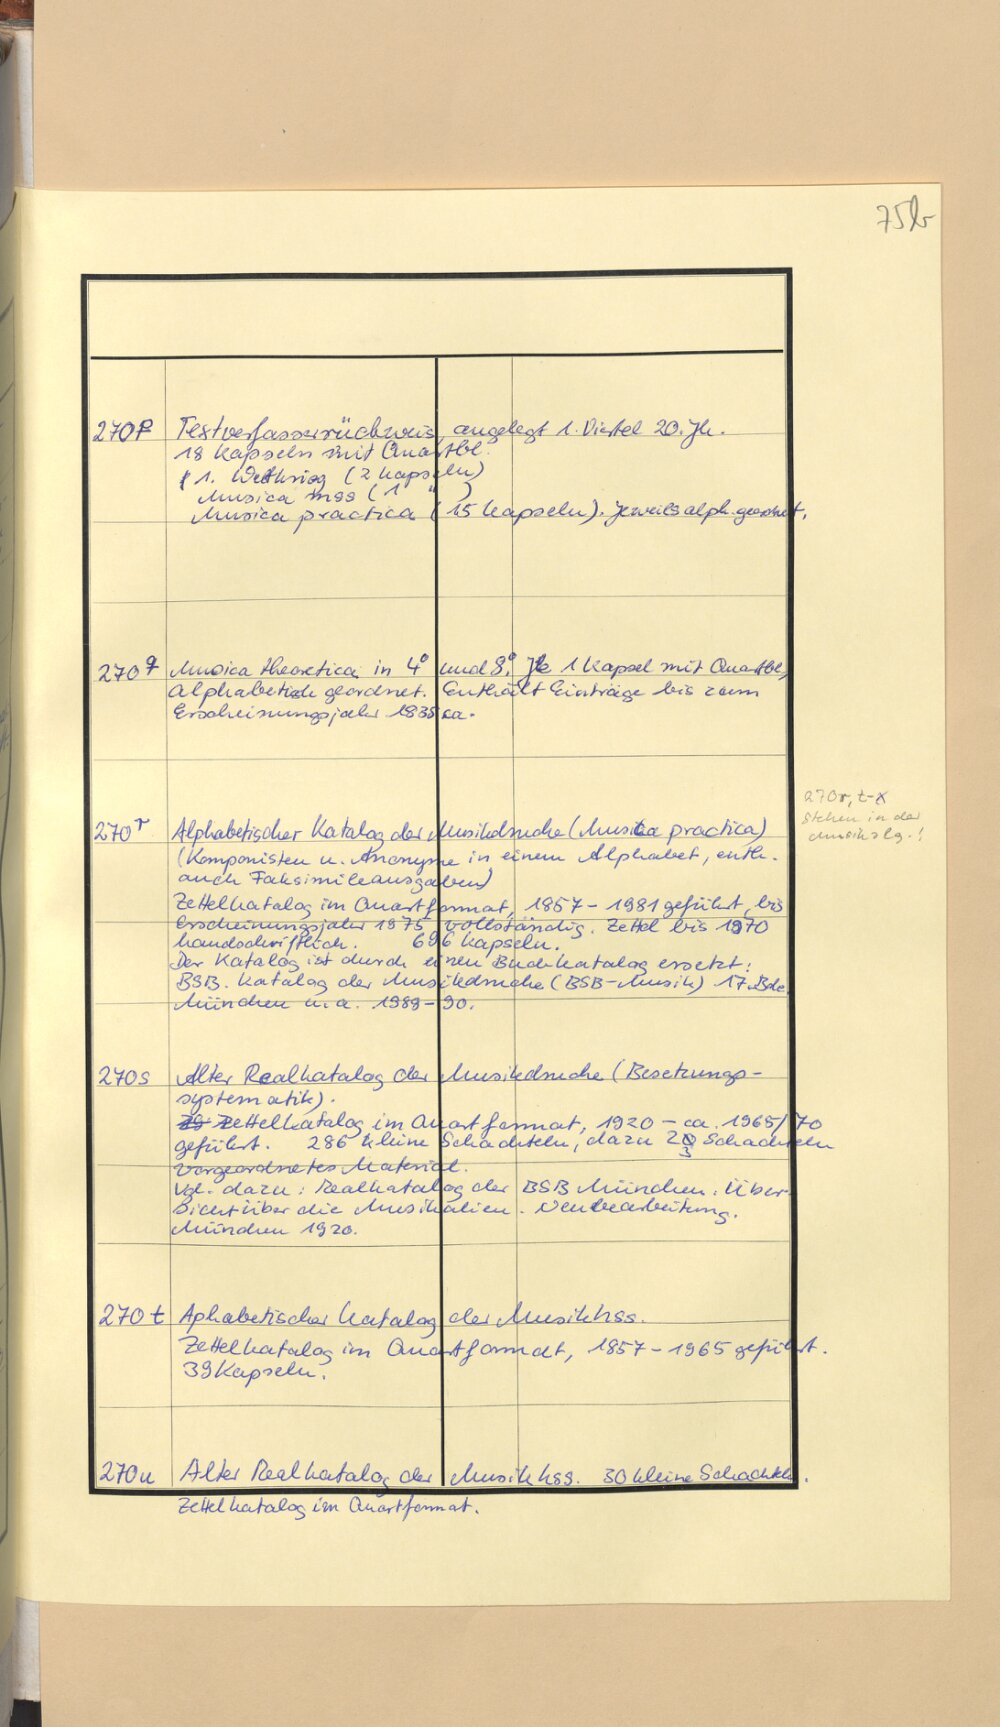 75b
270p Textverfasserrückweis, angelegt 1. Viertel 20. Jh.
18 Kapseln mit Quartbl.
1. Weltkrieg (2 Kapseln)
Musica mss (1 " )
Musica practica (15 Kapseln). Jeweils alph. geordnet.
270q Musica theoretica in 4° und 8°. 1 Kapsel mit Quartbl,
Alphabetisch geordnet. Enthält Einträge bis zum
Erscheinungsjahr 1835 ca.
270r, t-x
stehen in der
Musikslg.!
270r Alphabetischer Katalog der Musikdrucke (Musica practica)
(Komponisten u. Anonyme in einem Alphabet, enth.
auch Faksimileausgaben)
Zettelkatalog im Quartformat, 1857-1981 geführt, bis
Erscheinungsjahr 1975 vollständig. Zettel bis 1970
handschriftlich. 696 Kapseln.
Der Katalog ist durch einen Buchkatalog ersetzt:
BSB. Katalog der Musikdrucke (BSB-Musik) 17 Bde.
München u.a. 1988-90.
270s Alter Realkatalog der Musikdrucke (Besetzungs-
systematik).
Zettelkatalog im Quartformat, 1920 - ca. 1965/70
geführt. 286 kleine Schachteln, dazu 23 Schachteln
vorgeordnetes Material.
Vgl. dazu: Realkatalog der BSB München. Über-
sicht über die Musikalien. Neubearbeitung.
München 1920.
270t Aphabetischer Katalog der Musikhss.
Zettelkatalog im Quartformat, 1857-1965 geführt.
39 Kapseln.
270u Alter Realkatalog der Musikhss. 30 kleine Schachteln.
Zettelkatalog im Quartformat.